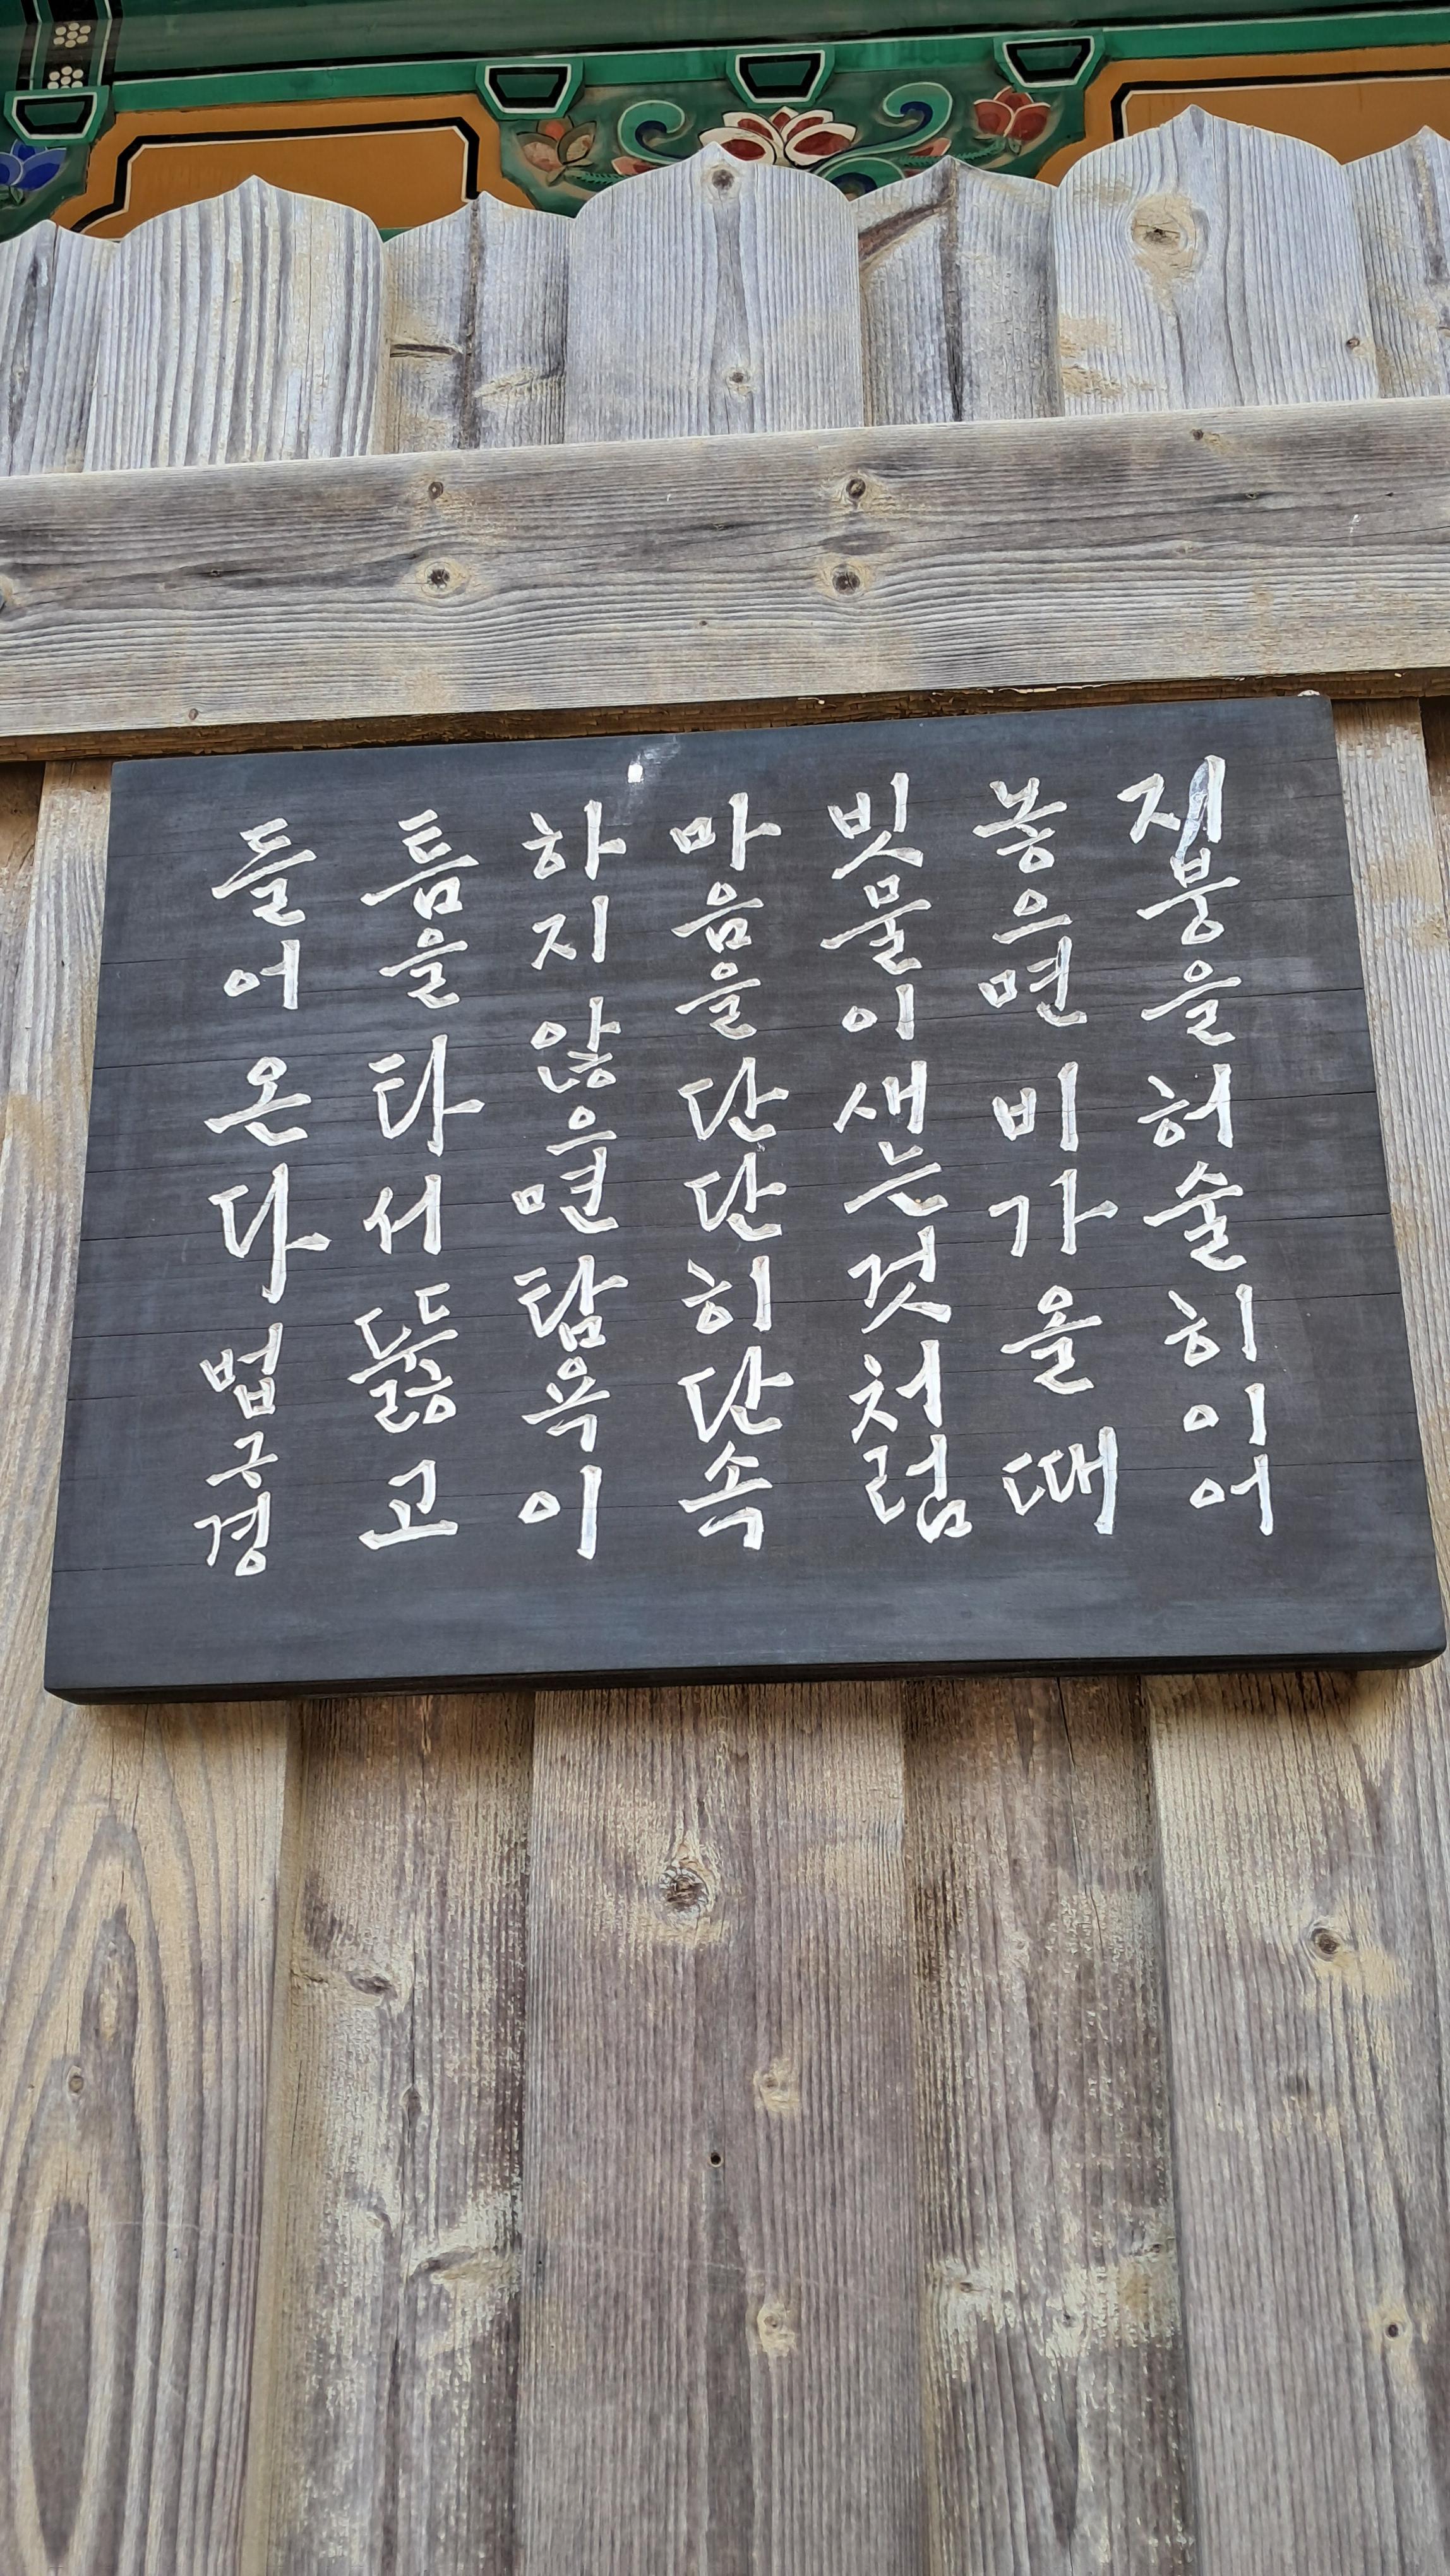 지붕을 허술히 이어
놓으면 비가 올 때
빗물이 새는 것처럼
마음을 단단히 단속
하지 않으면 탐욕이
틈을 타서 뚫고
들어 온다 법구경